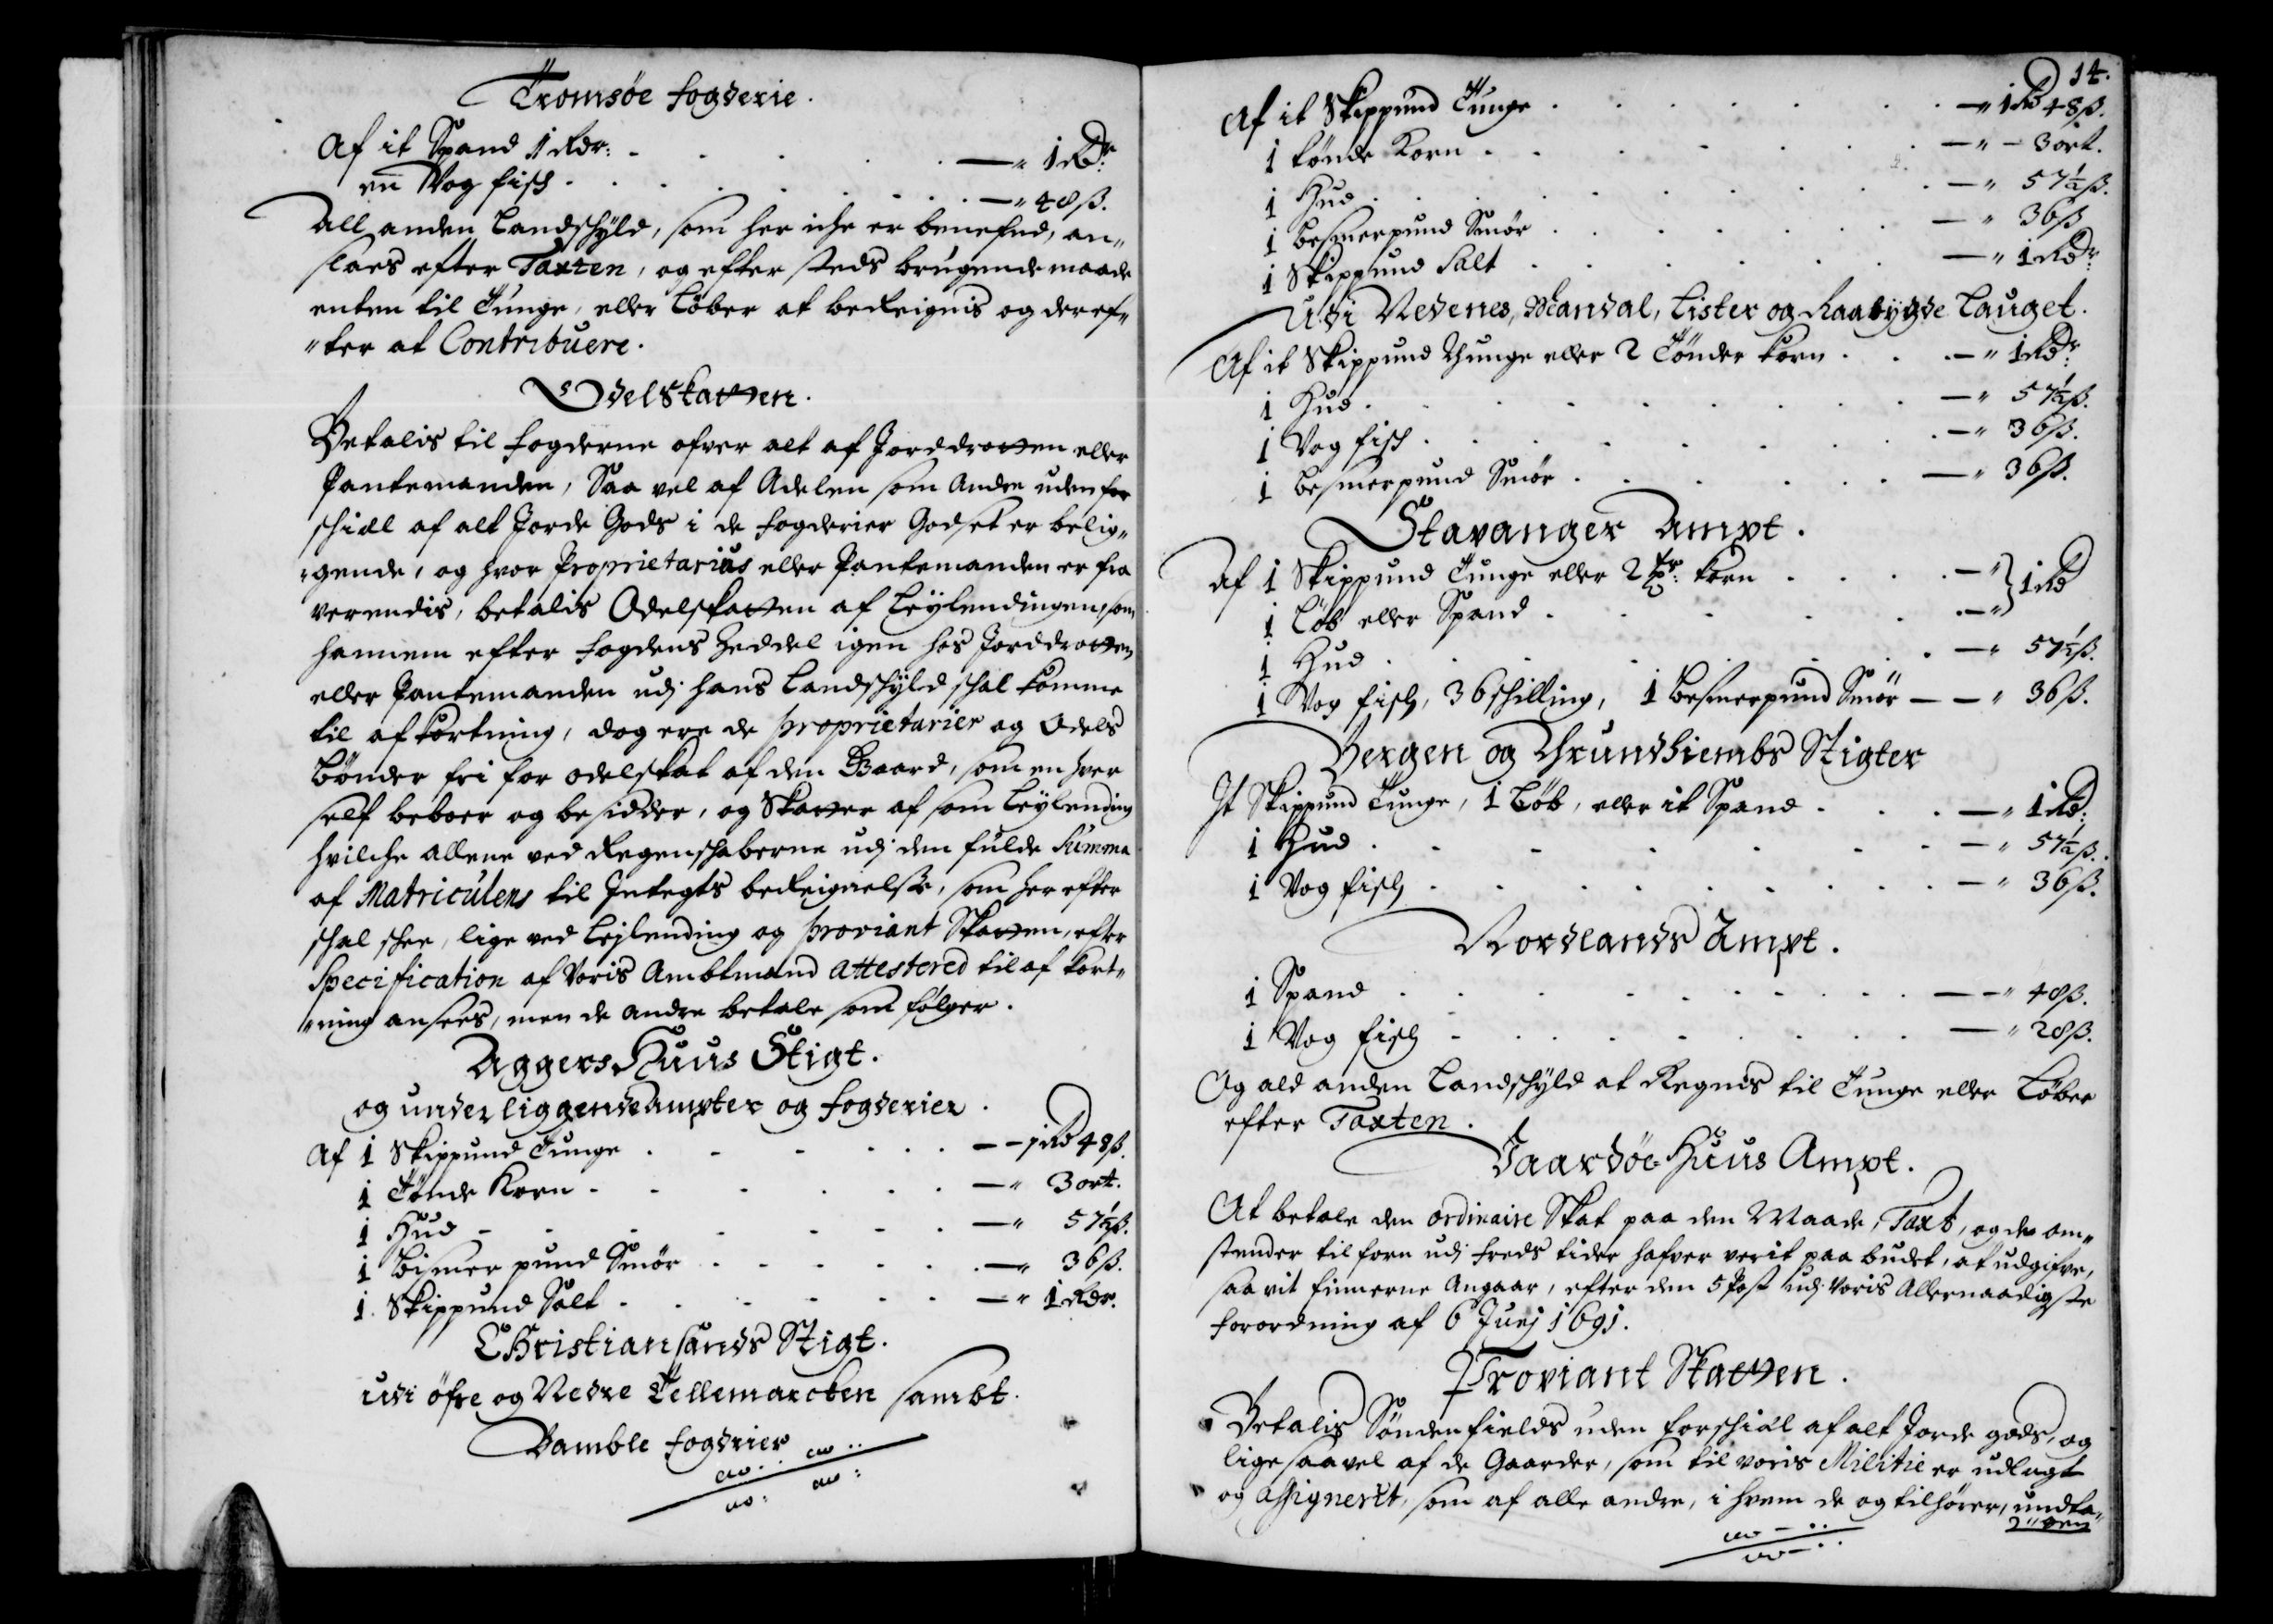 Tromsøe fogderie.
Af it Spand 1 Rdr: . . . . . . — „ 1 Rdr:
en Vog fisch . . . . . . — „ 48 ß.
All anden Landschyld, som her iche er benefnd, an„
slaes efter Taxten, og efter steds brugende maade
enten til Tunge, eller Løber at bereignis og deref„
„ter at Contribuere.
Odelskatten.
Betalis til fogderne ofver alt af Jorddrotten eller
Pantemanden, Saa vel af Adelen som Andre uden for
schiæl af alt Jorde Gods i de fogderier Godset er belig„
„gende, og hvor Proprietarius eller Pantemanden er fra
verendis, betalis Odelskatten af Leylendingen, som
hannem efter fogdens Zeddel igen hos Jorddrotten
eller Pantemanden udj hans Landschyld schal komme
til afkortning, dog ere de proprietarier og Odels
bønder fri for odelskat af den Gaard, som en hver
self beboer og besidder, og Skatter af som Leylending
hvilche allene ved Regenschaberne udj den fulde Summa
af Matriculens til Integts bereignelse, som her efter
schal schee, lige ved Lejlending og proviant Skatten, efter
Specification af Voris Ambtmand attestered til af kort„
„ning ansees, men de andre betale som følger.
AggersHuus Stigt.
og underliggende ampter og fogderier.
Af 1 Skippund Tunge . . . . . — – 1 Rd 48 ß.
1 Tønde Korn . . . . . — „ 3 ort.
1 Hud . . . . . — „ 57½ ß.
1 Bismer pund Smør . . . . . — „ 36 ß.
1. Skippund Salt . . . . . — „ 1 Rdr.
Christiansands Stigt.
Udi øfre og Nedre Tellemarcken sambt.
Bamble fogderier
14.
Af it Skippund Tunge . . . . . — „ 1 Rd 48 ß.
1 tønde Korn . . . . . — „ – 3 ort.
1 Hud . . . . . — „ 57½ ß.
1 Besmerpund Smør . . . . . — „ 36 ß
1 Skippund Salt . . . . . — „ 1 Rdr:
Udi Nedenes, Mandal, Lister og Raabygde Lauget.
Af it Skippund Thunge eller 2 Tønder korn . . . — „ 1 Rdr:
1 Hud . . . . . — „ 57½ ß.
1 Vog fisch . . . . . — „ 36 ß.
1 besmerpund Smør . . . . . — „ 36 ß.
Stavanger Ampt.
Af 1 Skippund Tunge eller 2 Tr: korn . . . . — „ } 1 Rd
1 Løb eller Spand . . . . . — „
1 Hud . . . . . — „ 57½ ß.
1 Vog fisch, 36 schilling, 1 Besmerpund Smør — — „ 36 ß.
Bergen og Thrundhiembs Stigter
It Skippund Tunge, 1 Løb, eller it Spand . . . — „ 1 Rd:
1 Hud . . . . . — „ 57½ ß.
1 Vog fisch . . . . . — „ 36 ß.
Nordlands Ampt.
1 Spand . . . . . — – „ 48 ß.
1 Vog fisch . . . . . — „ 28 ß.
Og ald anden Landschyld at Regnis til Tunge eller Løber
efter Taxten.
Vaardøe-Huus Ampt.
At betale den ordinaire Skat paa den Maade, Taxt, og de om„
stender til forn udj freds tider hafver verit paa budet, at udgifve,
saa vit finnerne Angaar, efter den 5 Post udj Voris Allernaadigste
forordning af 6 Junj 1691.
Proviant Skatten.
Betalis Søndenfields uden forschiæl af alt Jorde gods, og
lige saavel af de Gaarder, som til voris Militie er udlagt
og assignerit, som af alle andre, i hvem de og tilhører, undta„